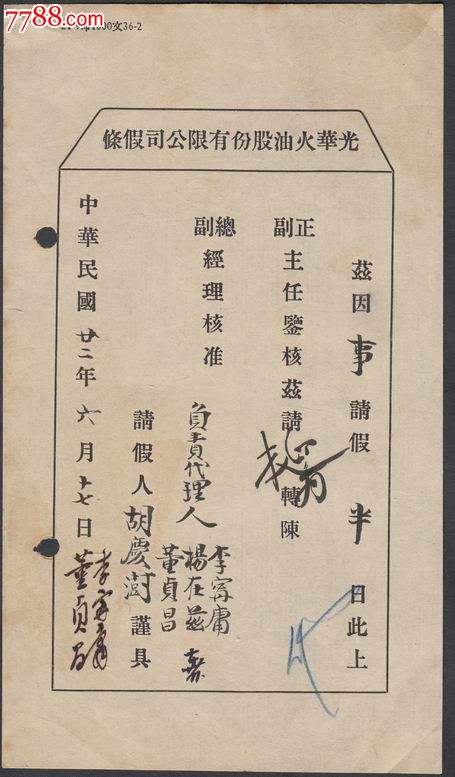 7788.com
光華火油股份有限公司假條
茲因事請假半日此上
正副主任鑒核茲請轉陳
總副經理核准
負責代理人 李甯庸 楊在茲 董貞昌
請假人胡慶澍謹具
中華民國廿二年六月十七日
董貞昌